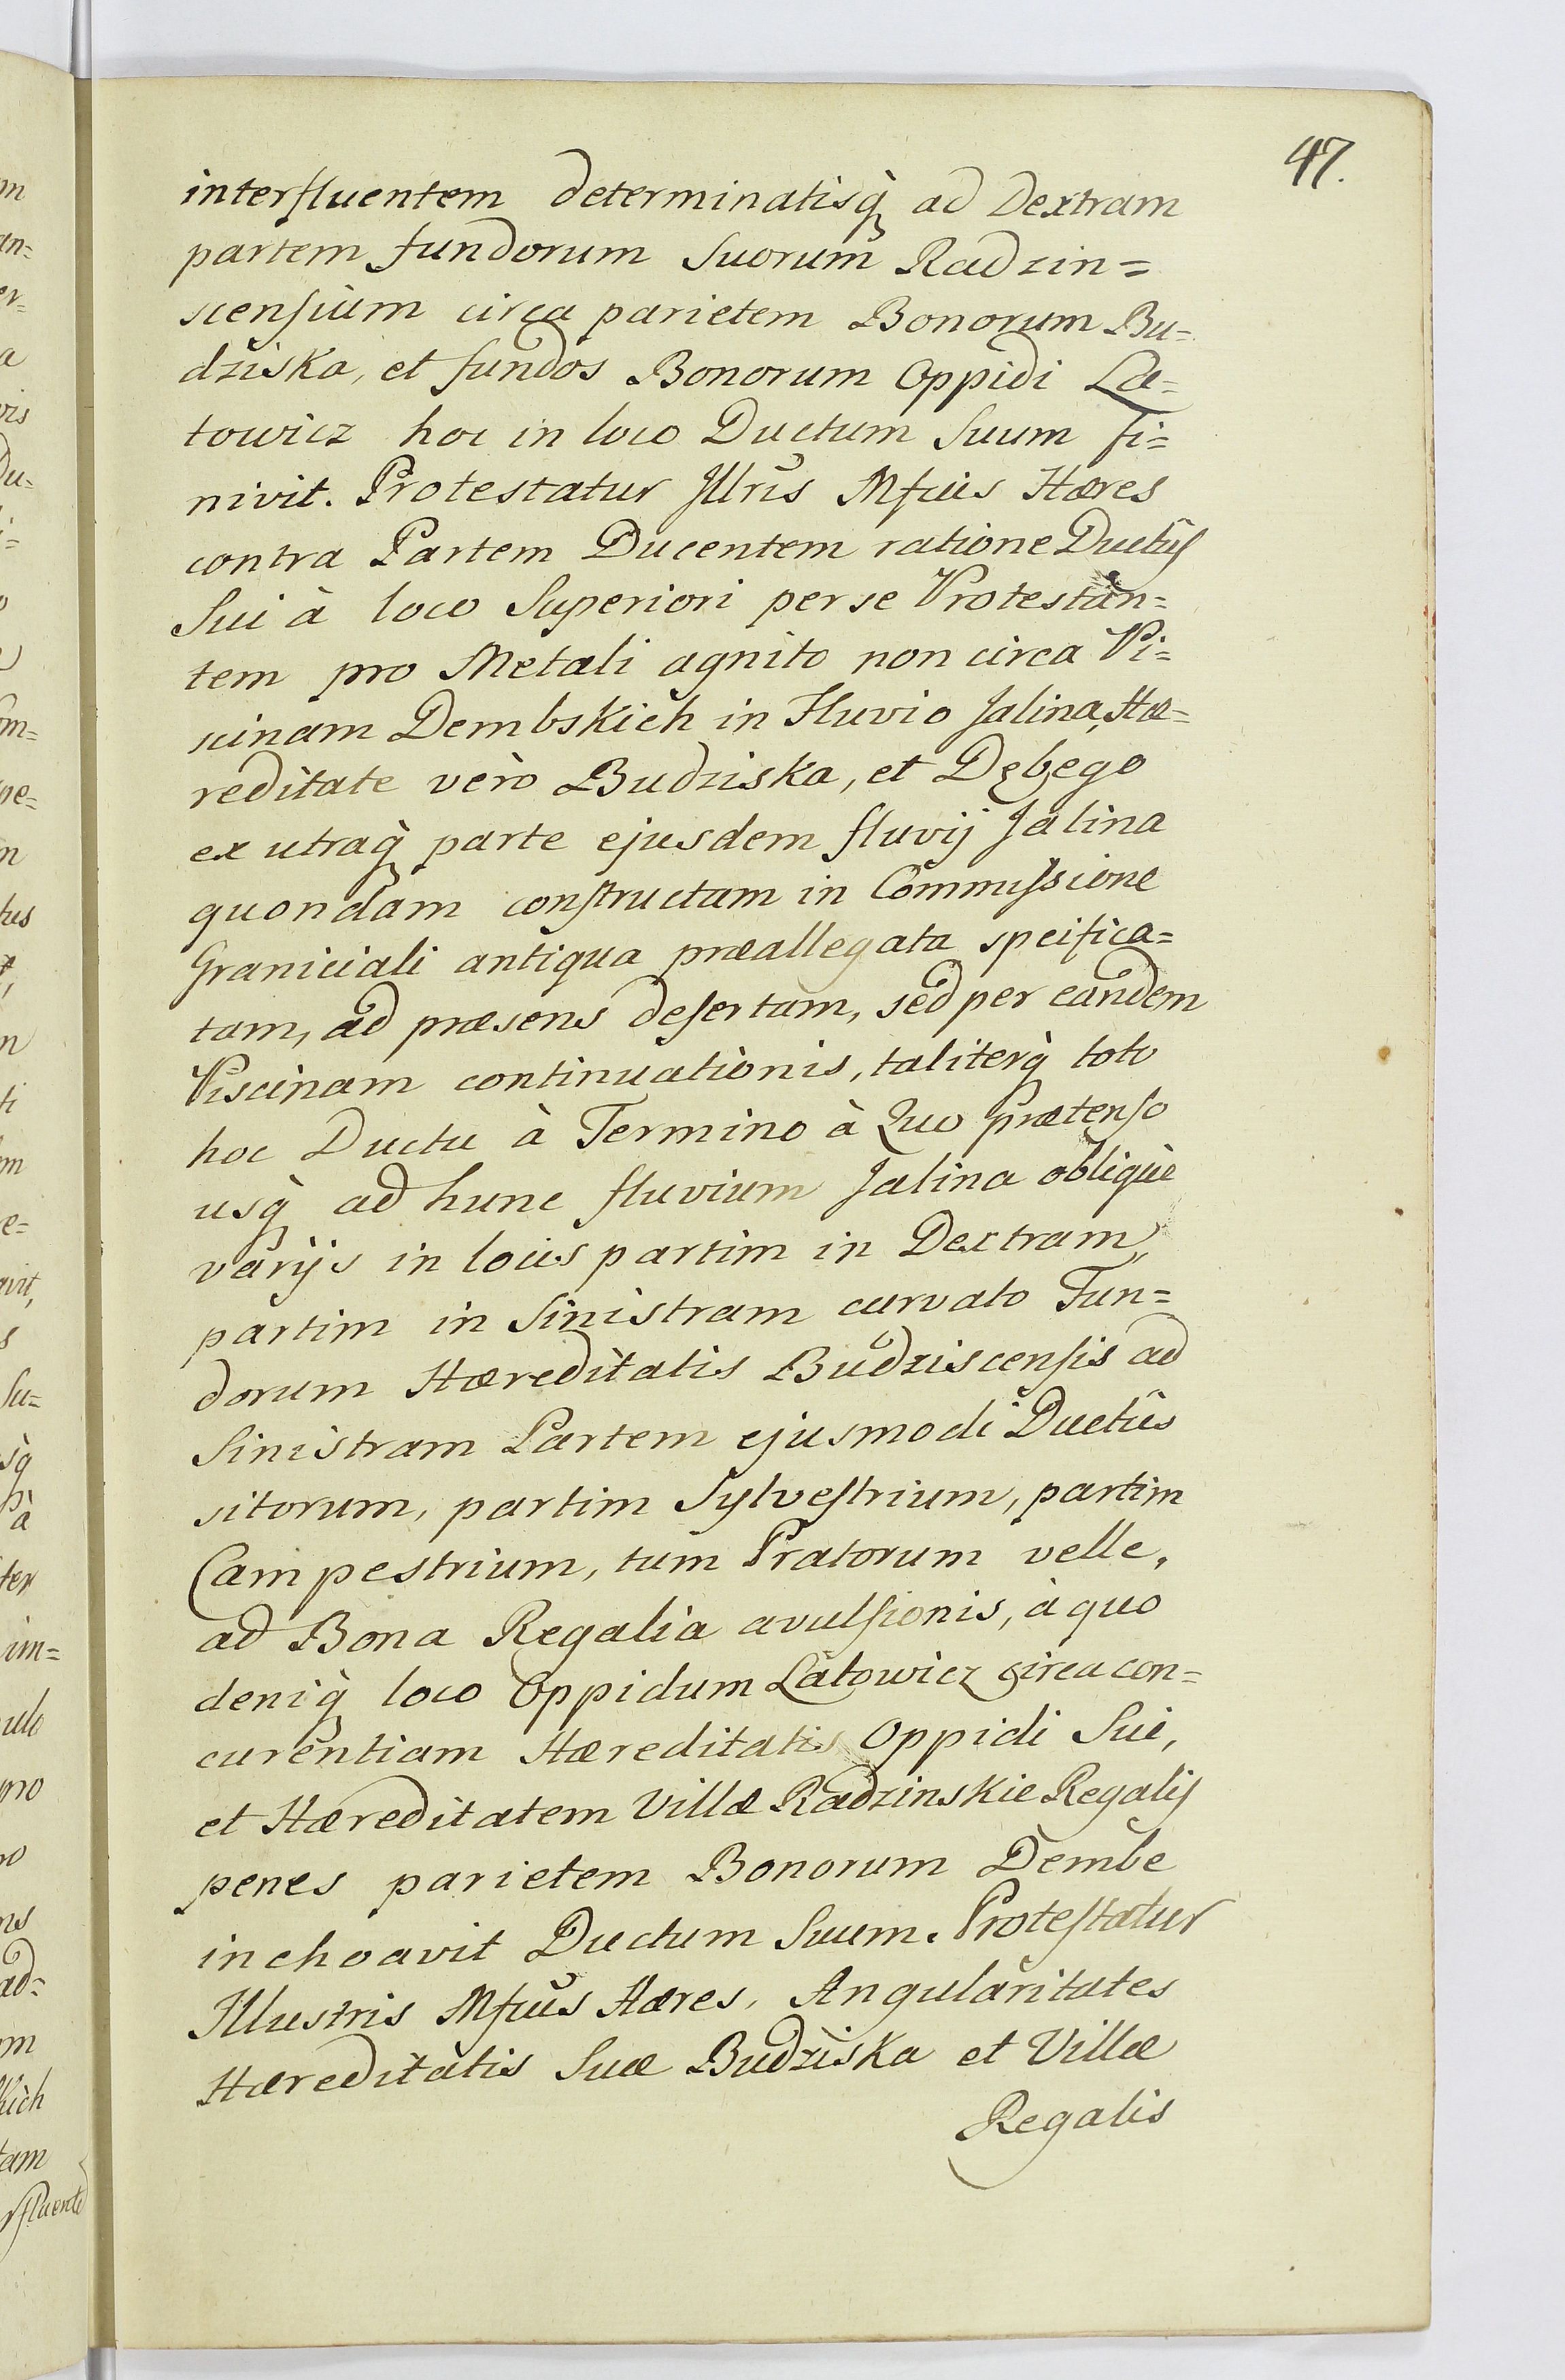 47.
interfluentem determinatisq̀ ad Dextram
partem fundorum Suorum Radzin=
scensium circa parietem Bonorum Bu=
dziska, et fundos Bonorum Oppidi La=
towicz hoc in loco Ductum Suum fi=
nivit. Protestatur Jllris Mfcus Hæres
contra Partem Ducentem ratione Ductûs
Sui à loco Superiori per se Protestan=
tem pro Metali agnito non circa Pi=
scinam Dembskich in Fluvio Jalina, Hæ=
reditate verò Budziska, et Dębego
ex utraq̀ parte ejusdem fluvij Jalina
quondam constructam in Commissione
Graniciali antiqua præallegata speifica=
tam, ad præsens desertam, sed per eandem
Piscinam continuationis, taliterq̀ toto
hoc Ductu à Termino à Quo prætenso
usq̀ ad hunc fluvium Jalina obliquè
varijs in locis partim in Dextram,
partim in Sinistram curvato Fun=
dorum Hæreditatis Budziscensis ad
Sinistram Partem ejusmodi Ductûs
sitorum, partim Sylvestrium, partim
Campestrium, tum Pratorum velle,
ad Bona Regalia avulsionis, à quo
deniq̀ loco Oppidum Latowicz circa con=
curentiam Hæreditatis Oppidi Sui,
et Hæreditatem Villæ Radzinskie Regalis
penes parietem Bonorum Dembe
inchoavit Ductum Suum. Protestatur
Jllustris Mfcus Hæres, Angularitates
Hæreditatis Suæ Budziska et Villæ
Regalis